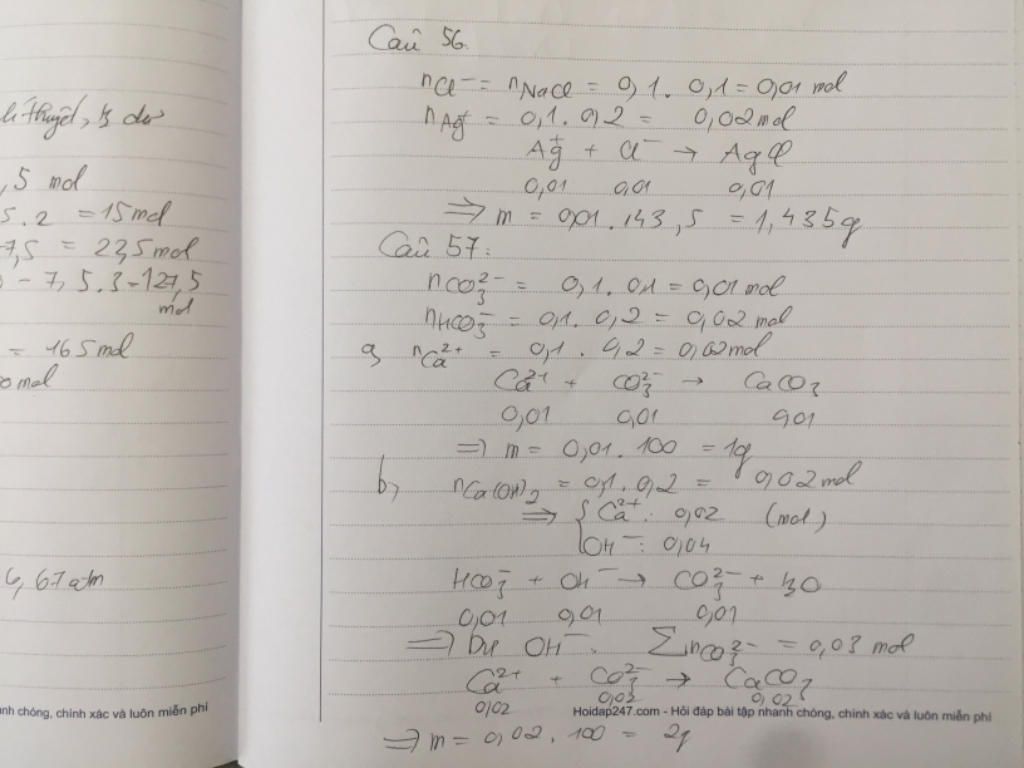 lí thuyết, H₂ dư
,5 mol
5.2 = 15 mol
7,5 = 22,5 mol
- 7,5.3 = 127,5
mol
= 165 mol
0 mol
6,67 atm
nh chóng, chính xác và luôn miễn phí
Câu 56.
nCl⁻ = nNaCl = 0,1. 0,1 = 0,01 mol
nAg⁺ = 0,1. 0,2 = 0,02 mol
Ag⁺ + Cl⁻ → AgCl
0,01 0,01 0,01
⇒ m = 0,01. 143,5 = 1,435g
Câu 57:
nCO₃²⁻ = 0,1. 0,1 = 0,01 mol
nHCO₃⁻ = 0,1. 0,2 = 0,02 mol
a, nCa²⁺ = 0,1. 0,2 = 0,02 mol
Ca²⁺ + CO₃²⁻ → CaCO₃
0,01 0,01 0,01
⇒ m = 0,01. 100 = 1g
b, nCa(OH)₂ = 0,1. 0,2 = 0,02 mol
⇒ { Ca²⁺: 0,02 (mol)
OH⁻: 0,04
HCO₃⁻ + OH⁻ → CO₃²⁻ + H₂O
0,01 0,01 0,01
⇒ Dư OH⁻. ΣnCO₃²⁻ = 0,03 mol
Ca²⁺ + CO₃²⁻ → CaCO₃
0,02 0,02 0,02
Hoidap247.com - Hỏi đáp bài tập nhanh chóng, chính xác và luôn miễn phí
⇒ m = 0,02. 100 = 2g